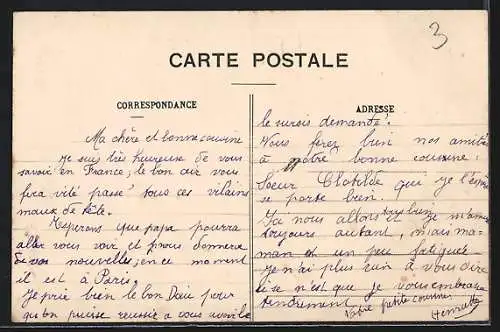 3
CARTE POSTALE
CORRESPONDANCE
ADRESSE
Ma chère et bonne cousine
Je suis très heureuse de vous
savoir en France, le bon air vous
fera vite passé tous ces vilains
maux de tête.
J'espérons que papa pourra
aller vous voir et nous donnera
de vos nouvelles; en ce moment
il est à Paris.
Je prie bien le bon Dieu pour
qu'on puisse reussir a vous avoir
le sursis demandé!
Vous ferez bien nos amitiés
à notre bonne cousine:
Soeur Clotilde qui je l'espère
se porte bien.
Ici nous allons très bien je m'amuse
toujours autant, mais ma-
man est un peu fatiguée
Je n'ai plus rien à vous dire
si ce n'est que je vous embrasse
tendrement
Votre petite cousine
Henriette